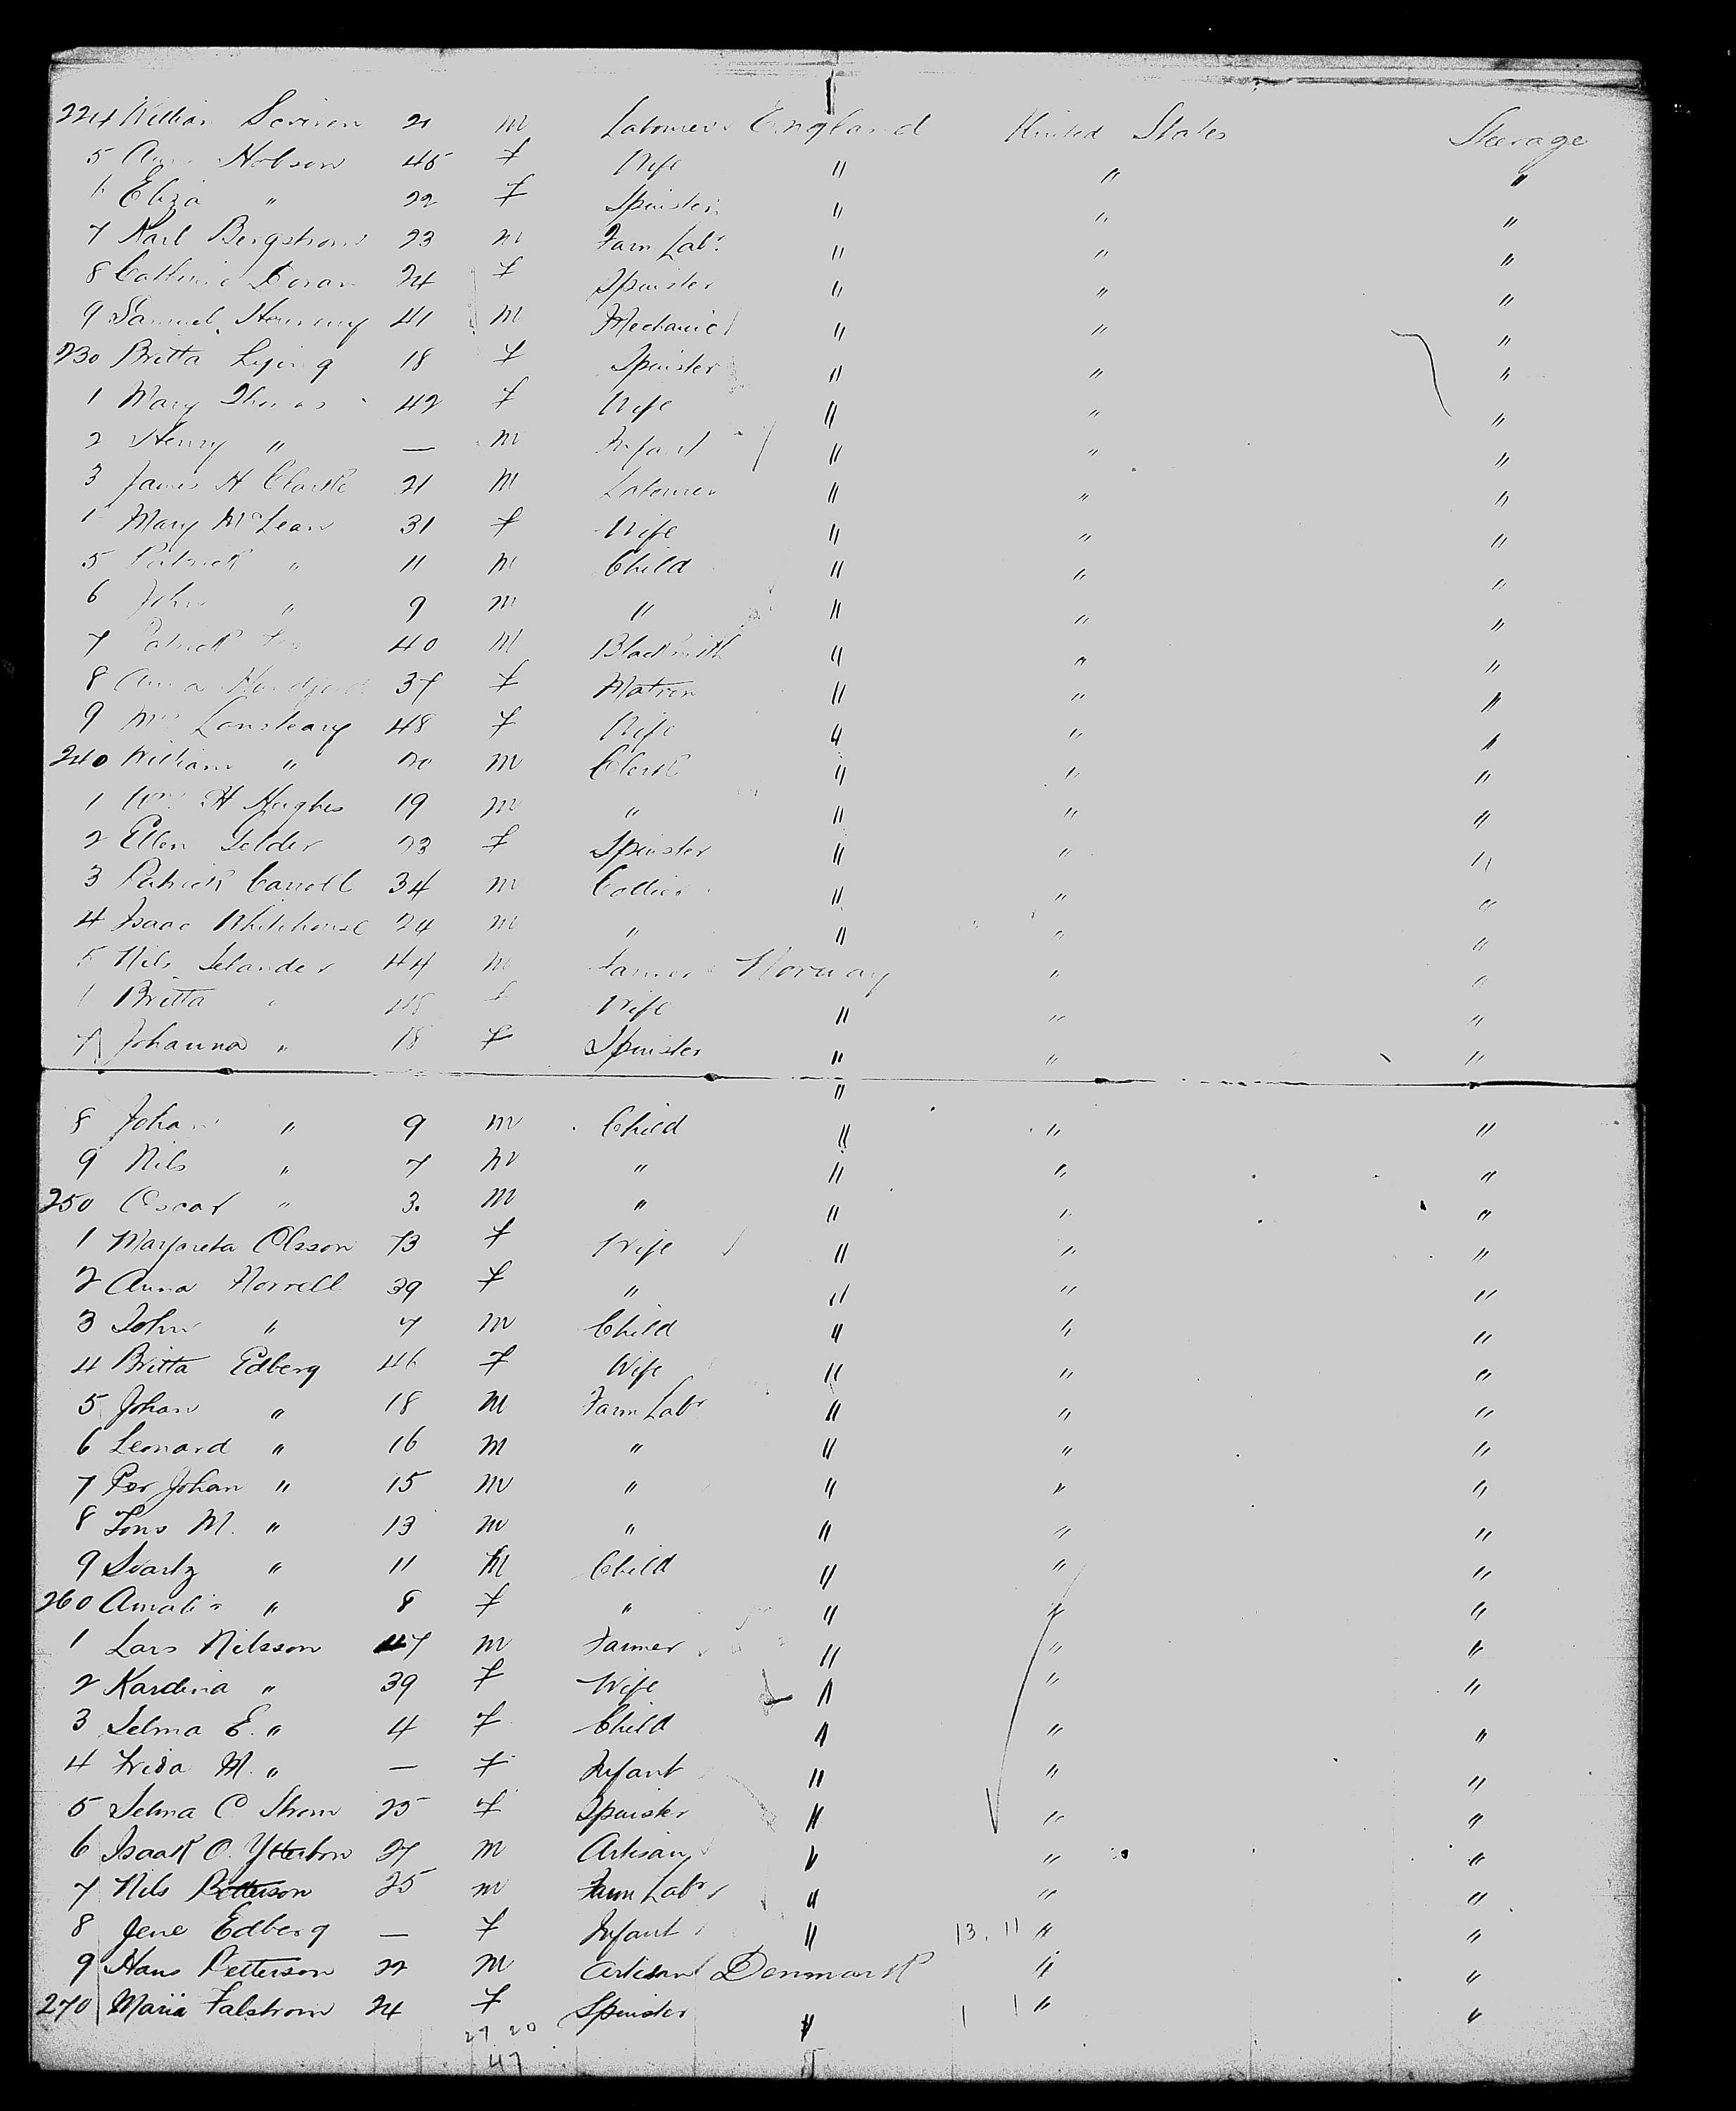 224 William Scriven 21 m Labourer England United States Steerage
5 Hobson 45 f Wife " " "
6 Eliza " 22 f Spinster " " "
7 Karl Bergstrom 23 m Farm Labr " " "
8 Catherine Doran 24 f Spinster " " "
9 Samuel 41 m Mechanic " " "
230 Britta 18 f Spinster " " "
1 Mary Thomas 42 f Wife " " "
2 Henry " — m Infant " " "
3 James H Clarke 21 m Labourer " " "
Mary McLean 31 f Wife " " "
5 Patrick " 11 m Child " " "
6 John " 9 m " " " "
7 Patrick 40 m Blacksmith " " "
8 Anna 37 f Matron " " "
9 Mrs 48 f Wife " " "
240 William " 20 m Clerk " " "
1 Wm H Hughes 19 m " " " "
2 Ellen Gelder 23 f Spinster " " "
3 Patrick Carroll 34 m Collier " " "
4 Isaac Whitehouse 24 m " " " "
5 Nils Selander 44 m Farmer Norway " "
Britta " f Wife " " "
7 Johanna " 18 f Spinster " " "
"
8 Johan " 9 m Child " " "
9 Nils " 7 m " " " "
250 Oscar " 3 m " " " "
1 Margareta Olsson 73 f Wife " " "
2 Anna Norrell 39 f " " " "
3 John " 7 m Child " " "
4 Britta Edberg 46 f Wife " " "
5 Johan " 18 m Farm Labr " " "
6 Leonard " 16 m " " " "
7 Per Johan " 15 m " " " "
8 Jons M. " 13 m " " " "
9 Svartz " 11 m Child " " "
260 Amalia " 8 f " " " "
1 Lars Nilsson 47 m Farmer " " "
2 Kardina " 39 f Wife " " "
3 Selma E. " 4 f Child " " "
4 Frida M. " — f Infant " " "
5 Selma C Strom 25 f Spinster " " "
6 Isaak O. Ytterbom 27 m Artisan " " "
7 Nils Petterson 25 m Farm Labr " " "
8 Jene Edberg — f Infant " 13. 11 " "
9 Hans Petterson 22 m Artisan Denmark " "
270 Maria Falstrom 24 f Spinster " 1 1 " "
27 20
47